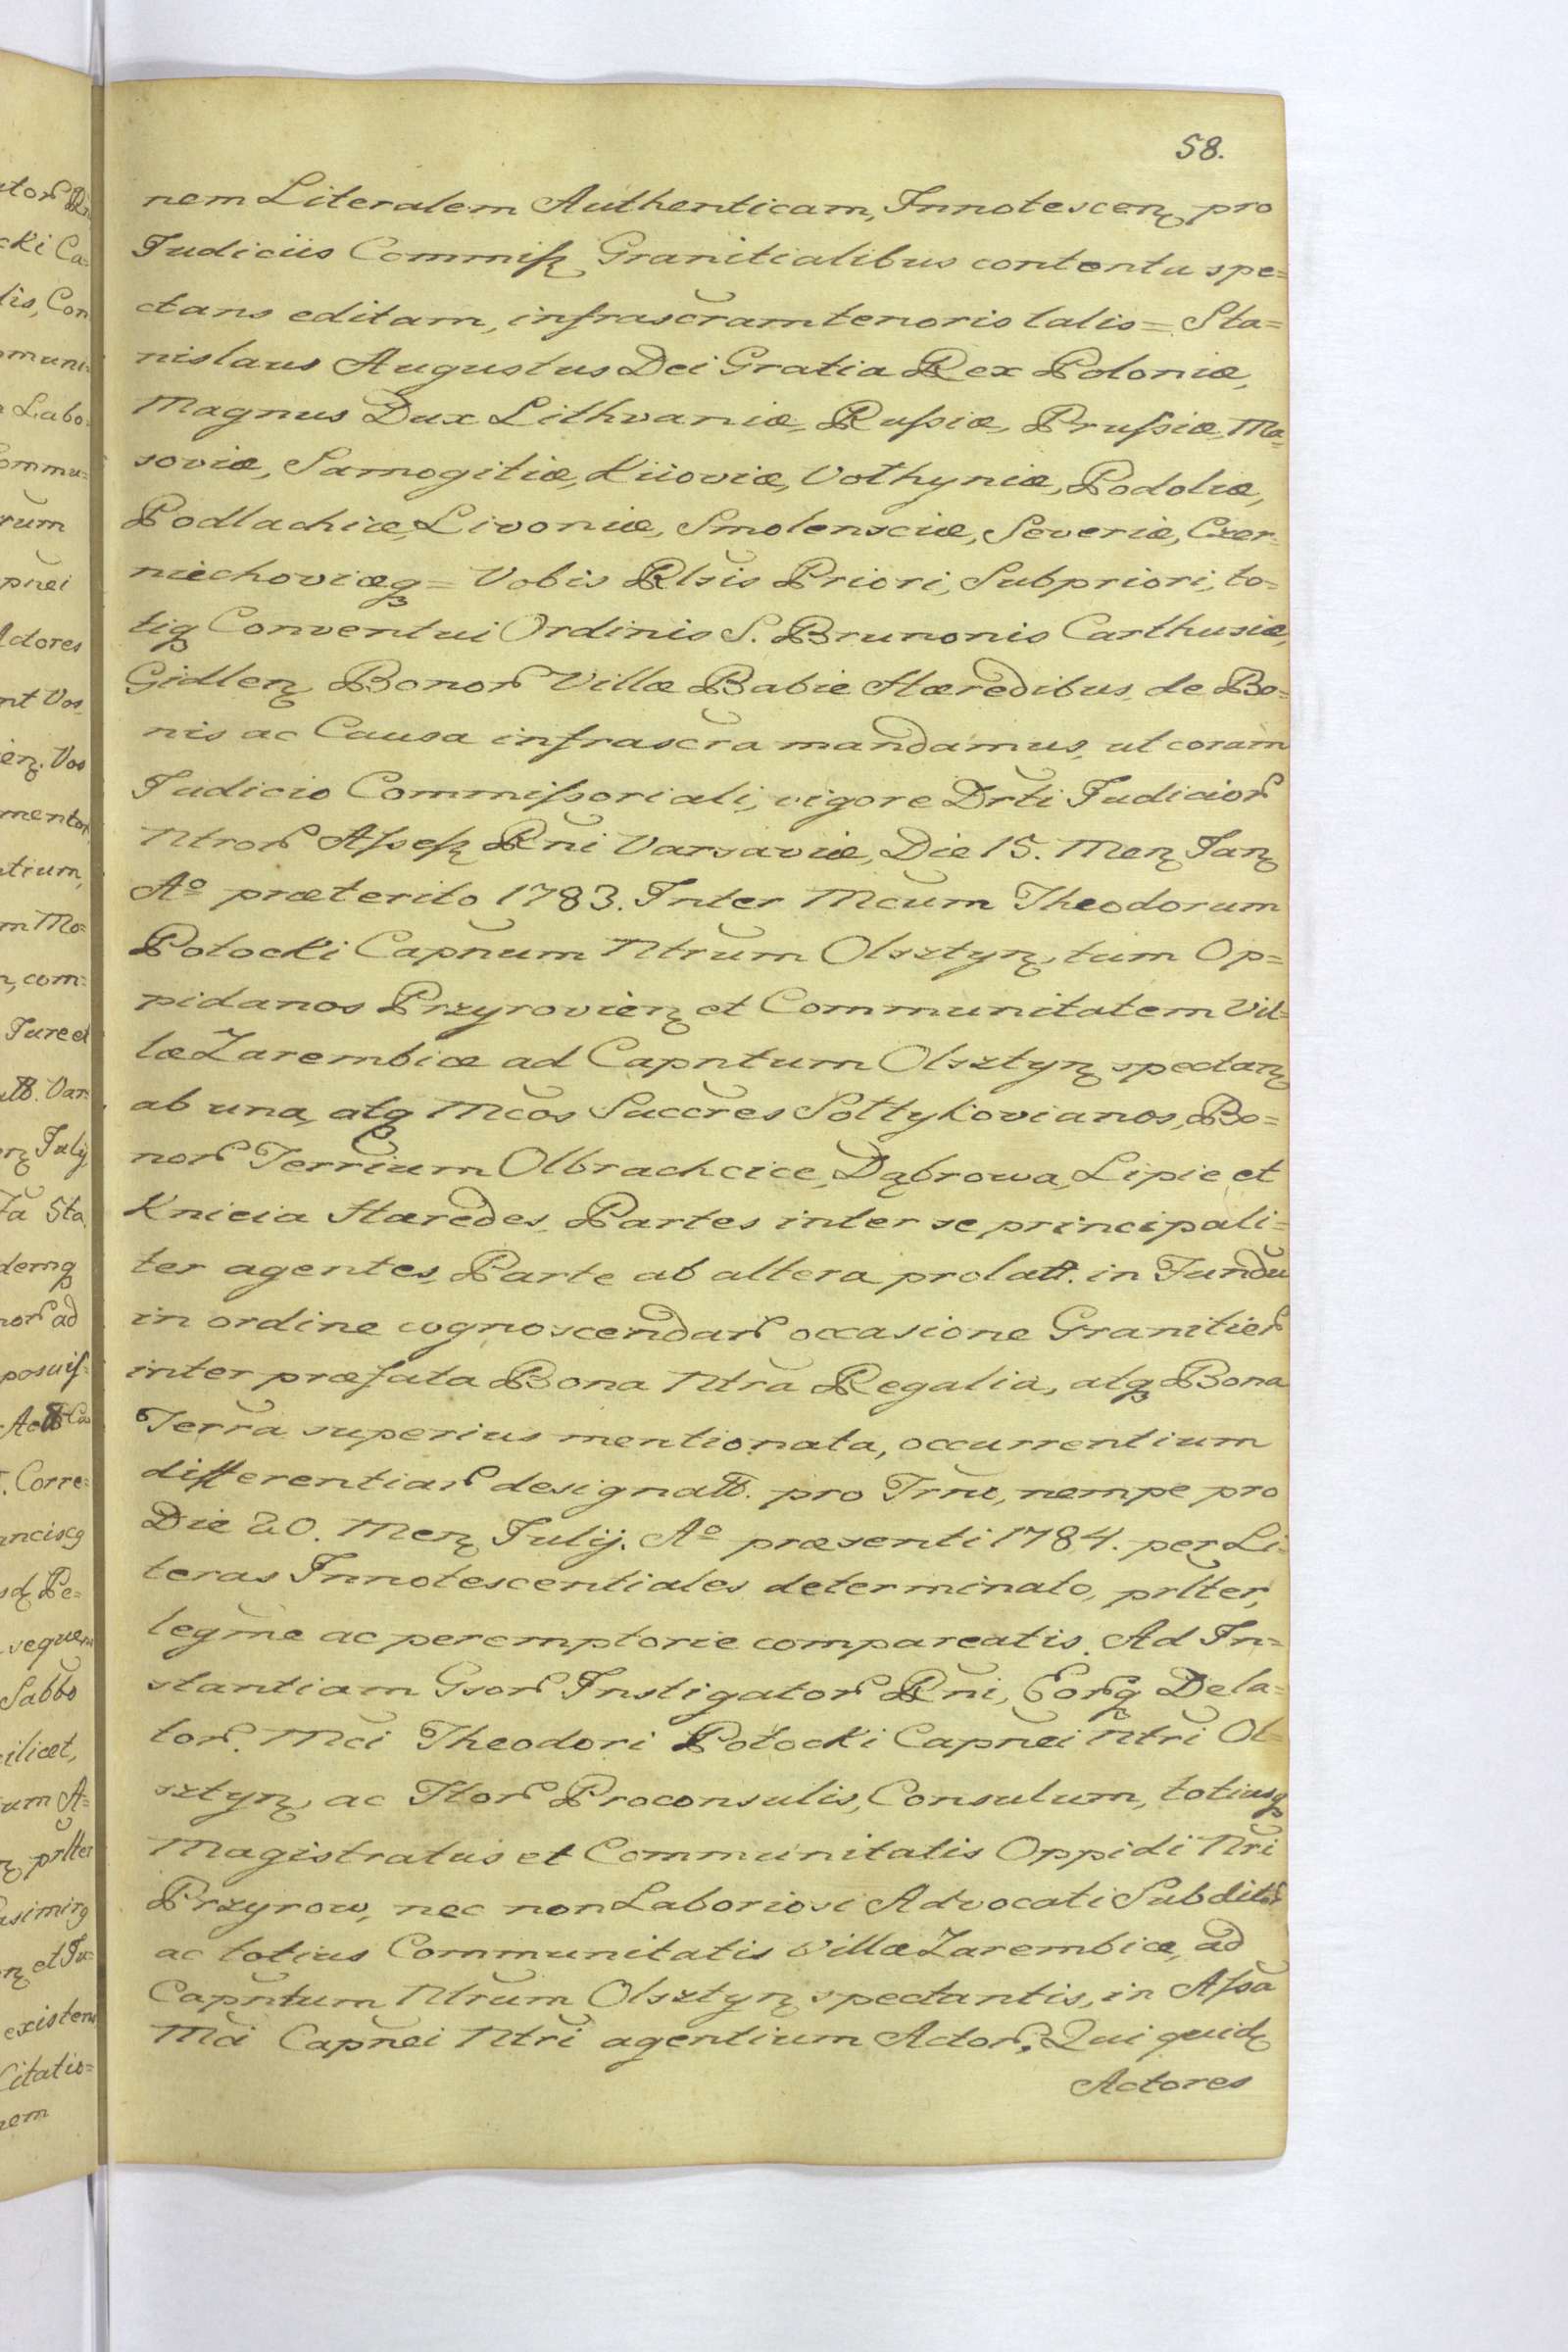 58.
nem Literalem Authenticam, Innotescenꝫ pro
Judiciis Commiſꝫ Granitialibus contenta spe=
ctans editam, infrascr̃am tenoris talis = Sta=
nislaus Augustus Dei Gratia Rex Poloniæ,
Magnus Dux Lithvaniæ, Ruſsiæ, Pruſsiæ, Ma=
soviæ, Samogitiæ, Kiioviæ, Volhyniæ, Podoliæ,
Podlachiæ, Livoniæ, Smolensciæ, Severiæ, Czer=
niechoviæqꝫ = Vobis Rlsis Priori, Subpriori, to=
tiqꝫ Conventui Ordinis S. Brunonis Carthusiæ,
Gidlenꝫ Bonoꝝ Villæ Babie Hæredibus, de Bo=
nis ac Causa infrascr̃a mandamus, ut coram
Judicio Commiſsoriali, vigore Drti Judicioꝝ
Ntroꝝ Aſseſꝫ Rñi Varsaviæ, Die 15. Menꝫ Janꝫ
Aº præterito 1783. Inter Mcum Theodorum
Potocki Capñum Ntrũm Olsztynꝫ, tum Op=
pidanos Przyrovienꝫ et Communitatem Vil=
læ Zarembice ad Capntum Olsztynꝫ spectanꝫ
ab una, atqꝫ Mcõs Succr̃es Sołtykovianos, Bo=
noꝝ Terrium Olbrachcice, Dąbrowa, Lipie et
Knieia Hæredes, Partes inter se principali=
ter agentes, Parte ab altera prolatt. in Fundũ
in ordine cognoscendaꝝ occasione Granitieꝝ
inter præfata Bona Ntrã Regalia, atqꝫ Bona
Terrã superius mentionata, occurrentium
differentiaꝝ designatt. pro Trno, nempe pro
Die 20. Menꝫ Julij. Aº præsenti 1784. per Li=
teras Innotescentiales determinato, prlter,
legme ac peremptorie compareatis. Ad In=
stantiam Gsoꝝ Instigatoꝝ Rñi, Eoꝝqꝫ Dela=
toꝝ. Mci Theodori Potocki Capñei Ntrĩ Ol=
sztynꝫ, ac Hoꝝ Proconsulis, Consulum, totiusqꝫ
Magistratus et Communitatis Oppidi Nrĩ
Przyrow, nec non Laboriosi Advocati Subditoꝝ
ac totius Communitatis Villæ Zarembice, ad
Capñtum Ntrũm Olsztynꝫ spectantis, in Aſsã
Mci Capñei Ntrĩ agentium Actoꝝ; Qui quidꝫ
Actores